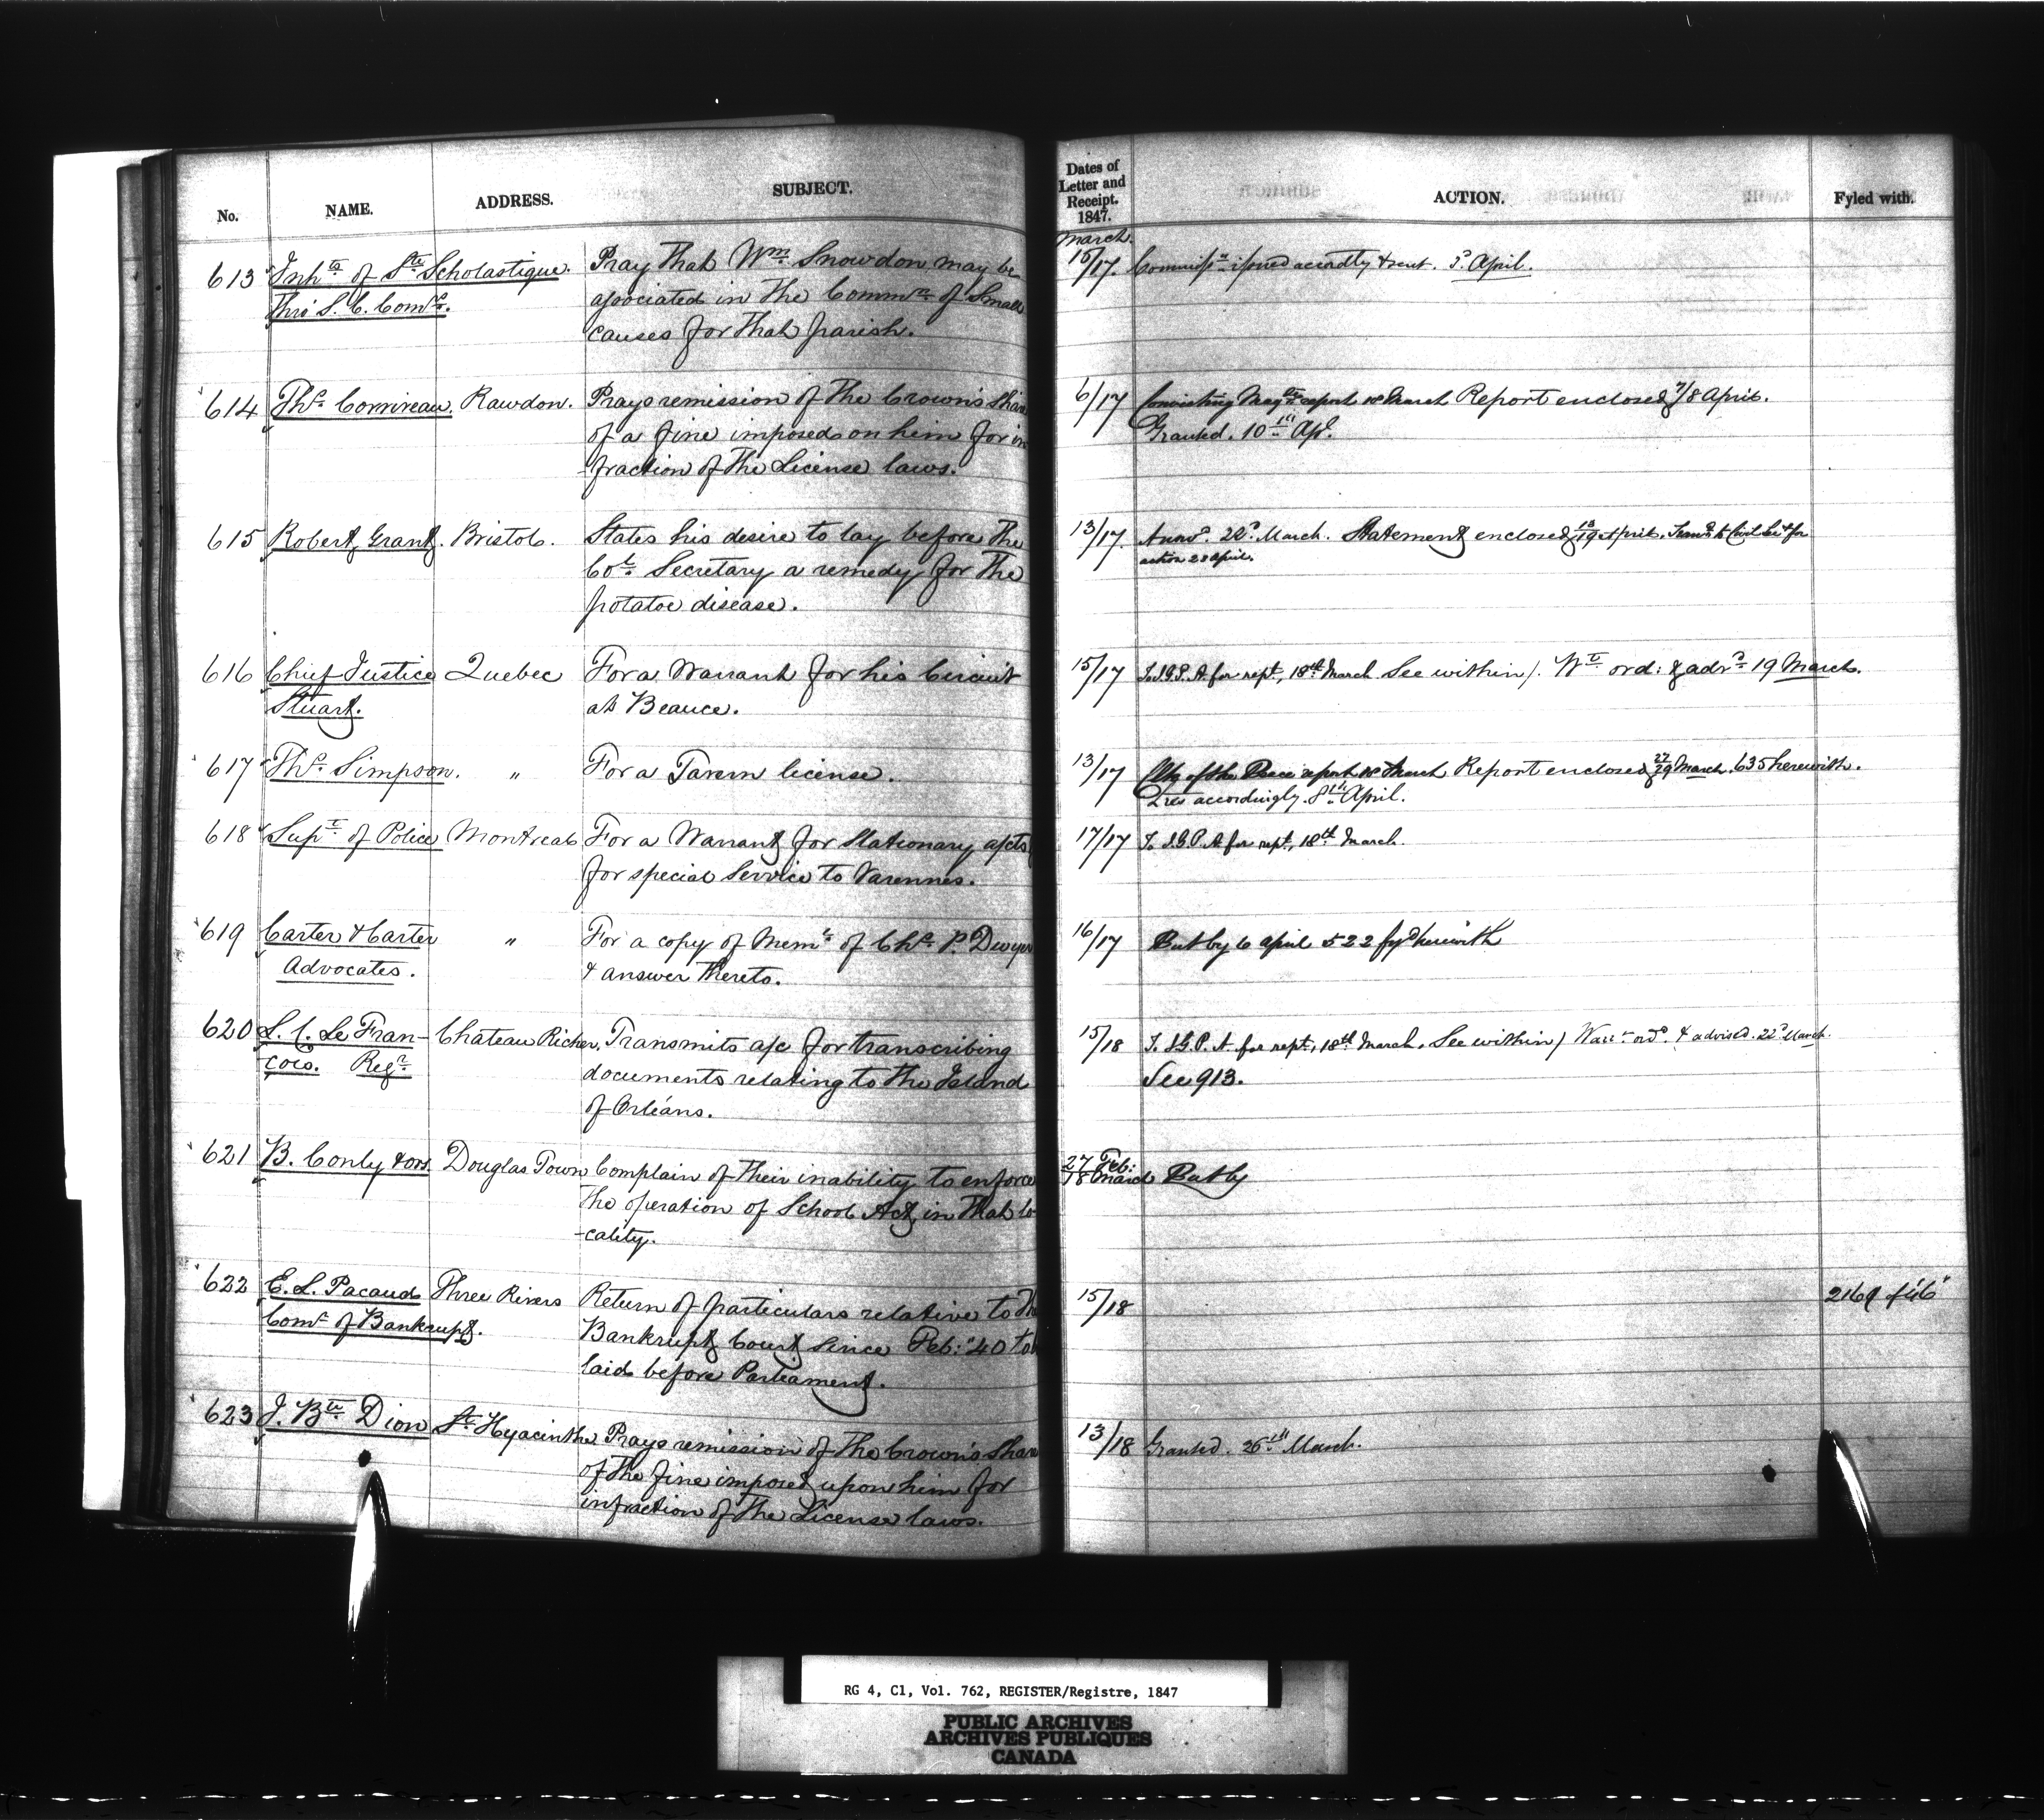 No. NAME. ADDRESS. SUBJECT.
613 Inhts of Ste Scholastique. Pray that Wm Snowdon may be
thro' S. C. Comrs. associated in the Commn of Small
causes for that parish.
614 Ths Corrireau. Rawdon. Prays remission of the Crown's share
of a fine imposed on him for in
-fraction of the License laws.
615 Robert Grant. Bristol. States his desire to lay before the
Col. Secretary a remedy for the
potatoe disease.
616 Chief Justice Quebec For a Warrant for his Circuit
Stuart. at Beauce.
617 Ths Simpson. " For a Tavern license.
618 Supt of Police Montreal For a Warrant for Stationary a/cts
for special Service to Varennes.
619 Carter & Carter " For a copy of Meml of Chs P. Dwyer
Advocates. & answer thereto.
620 L. C. Le Fran- Chateau Richer. Transmits a/c for transcribing
cois. Regr documents relating to the Island
of Orléans.
621 B. Conly & ors. Douglas Town Complain of their inability to enforce
the operation of School Act, in that lo
-cality.
622 E. L. Pacaud Three Rivers Return of particulars relative to the
Comr of Bankrupt. Bankrupt Court since Feb: '40 to
laid before Parliament.
623 J. Bte Dion St Hyacinthe Prays remission of the Crown's share
of the fine imposed upon him for
infraction of the License laws.
Dates of
Letter and
Receipt.
1847. ACTION. Fyled with.
March.
15/17. Commissn issued accordly & sent. 3d April.
6/17 Convicting Magte report 18 March Report enclosed 7/8 April.
Granted. 10th Apl.
13/17. Answd. 22d March. Statement enclosed 13/19 April. to Civil for
action 20 April.
15/17 To I.G.P.A. for rept, 18th March See within/. Wt ord: & advd 19 March.
13/17 Clk of the Peace report 18 March Report enclosed 27/29 March. 635 herewith.
accordingly. 8th April.
17/17 To I.G.P.A for rept, 18th March.
16/17 Put by 6 April 522 fyd herewith
15/18 To I.G.P.A. for rept, 18th March. See within/ Warrt ord. & advised. 22d March.
See 913.
27 Feb:
18 March Put by
15/18 2169 of '46
13/18 Granted. 26th March.
RG 4, C1, Vol. 762, REGISTER/Registre, 1847
PUBLIC ARCHIVES
ARCHIVES PUBLIQUES
CANADA